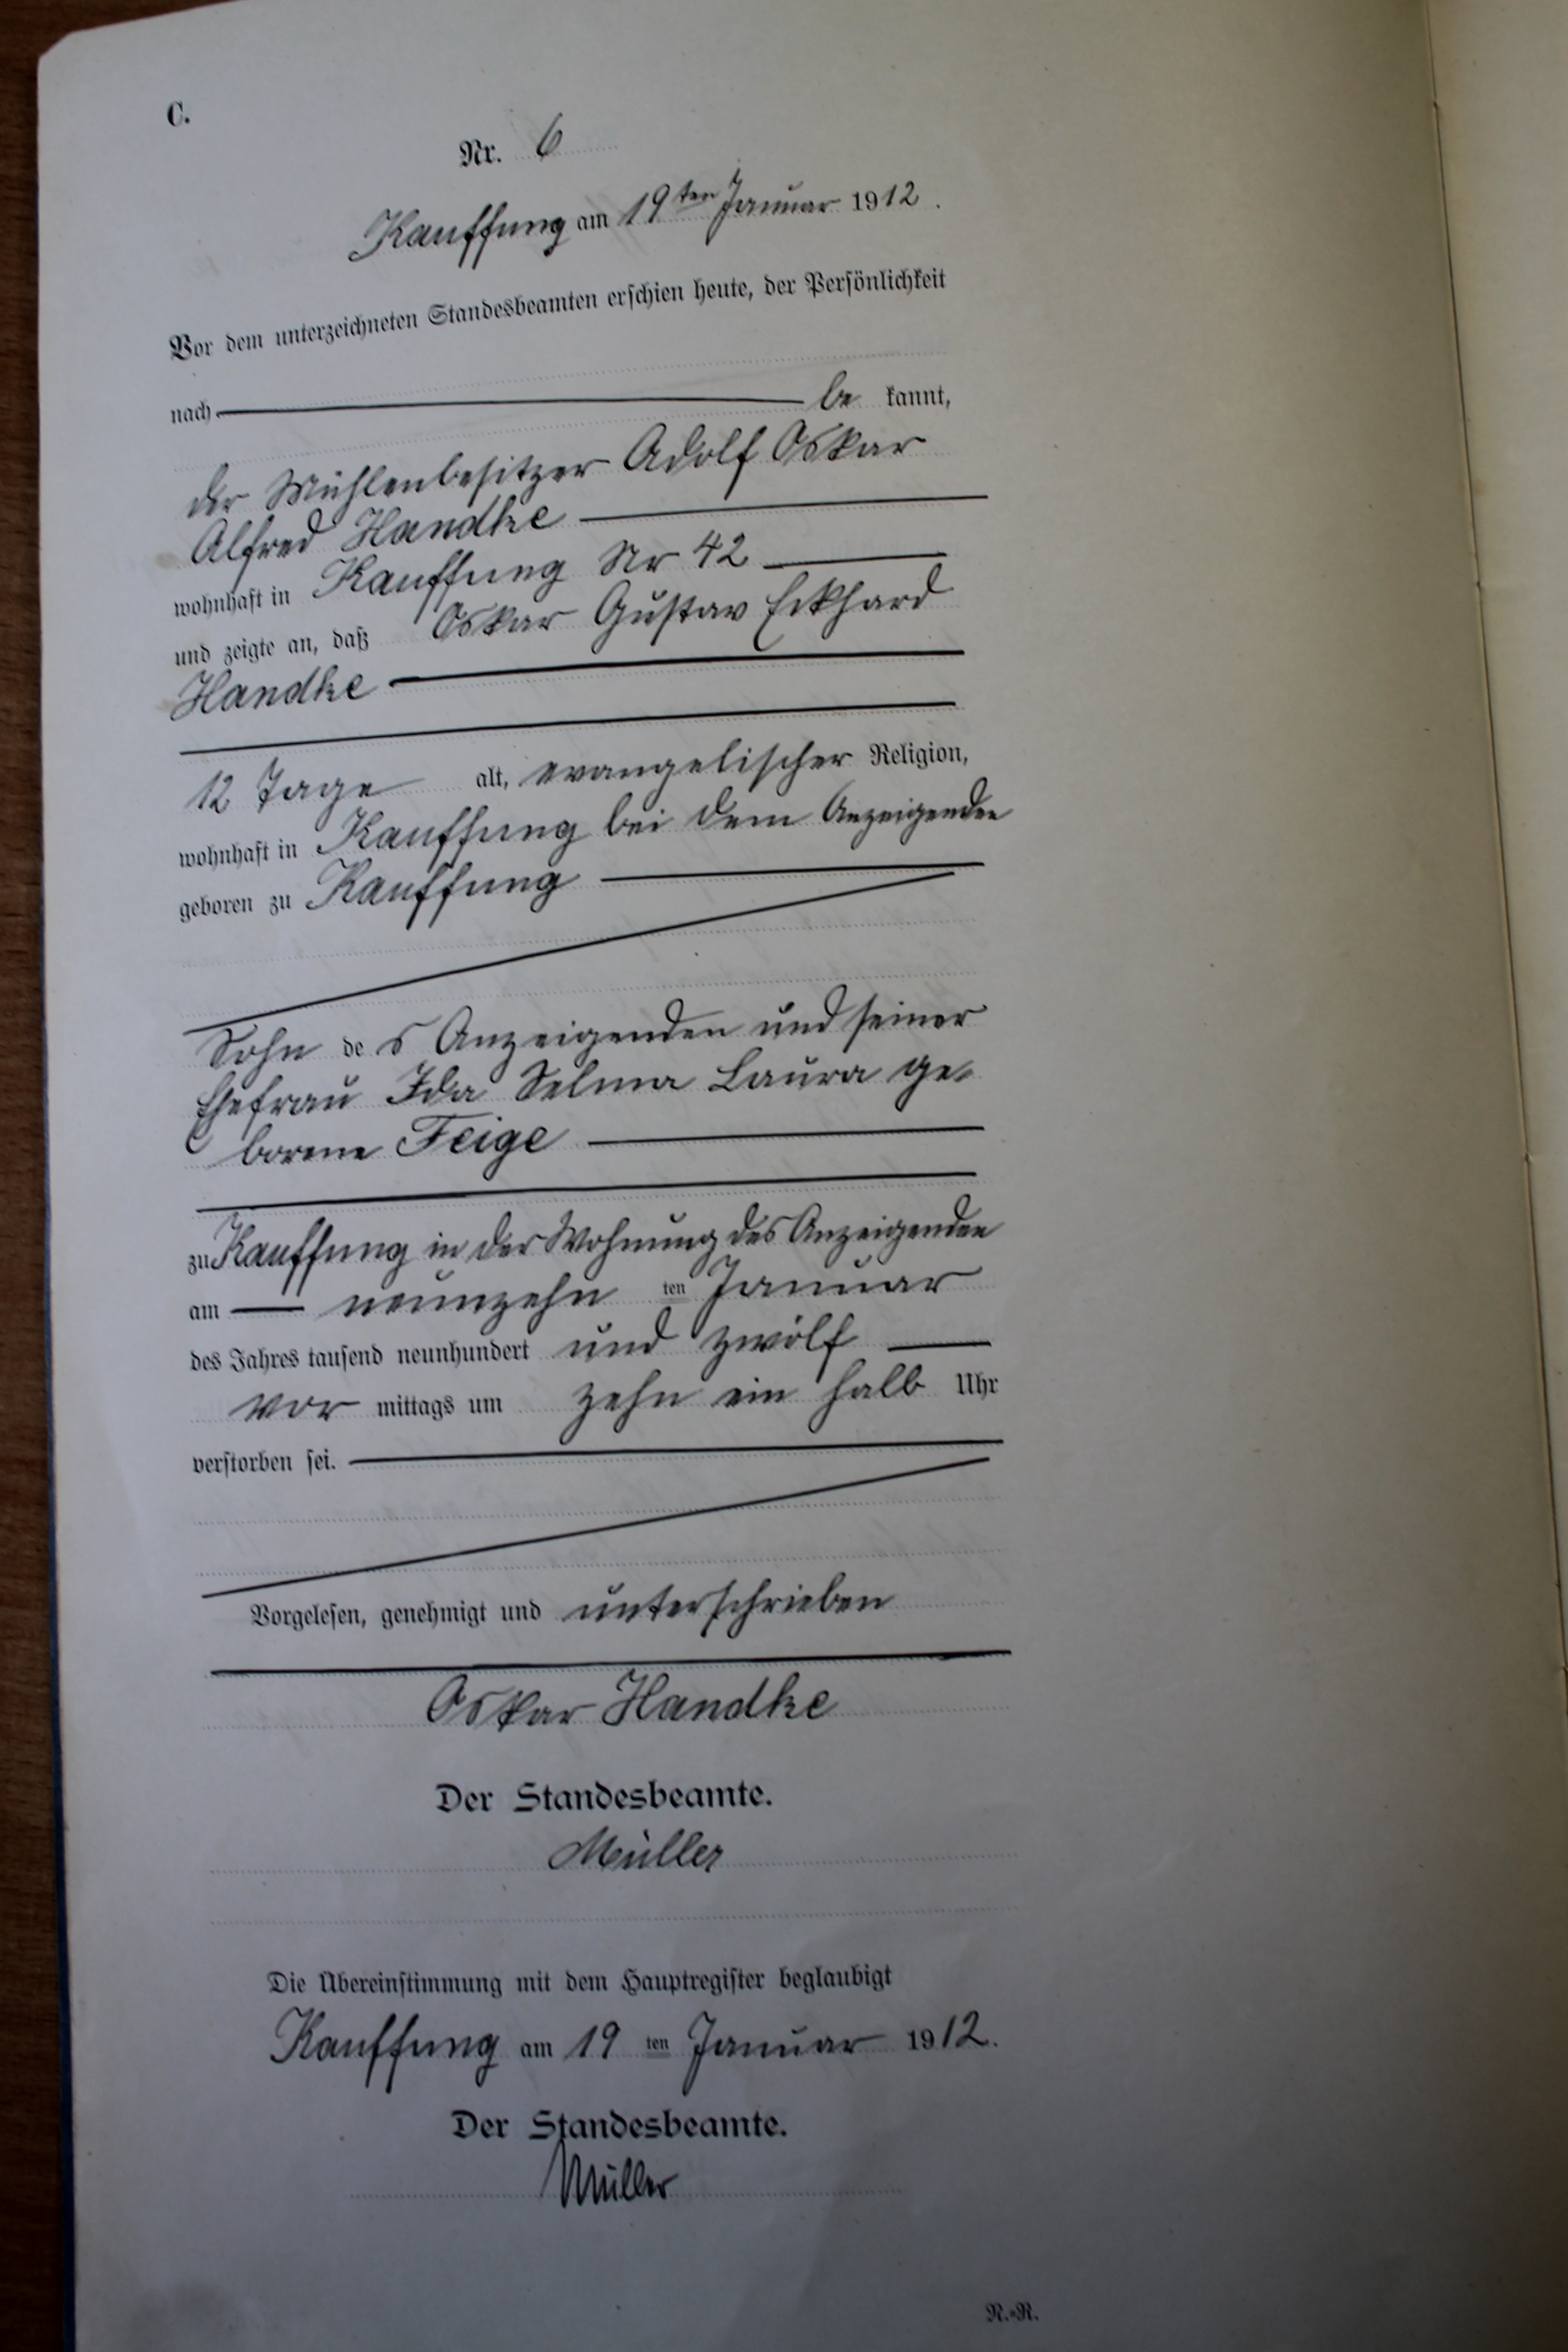 C.
Nr. 6
Kauffung am 19ten Januar 1912.
Vor dem unterzeichneten Standesbeamten erschien heute, der Persönlichkeit
nach be kannt,
der Mühlenbesitzer Adolf Oskar
Alfred Handke
wohnhaft in Kauffung Nr 42
und zeigte an, daß Oskar Gustav Eckhard
Handke
12 Tage alt, evangelischer Religion,
wohnhaft in Kauffung bei dem Anzeigenden
geboren zu Kauffung
Sohn des Anzeigenden und seiner
Ehefrau Ida Selma Laura ge-
borene Feige
zu Kauffung in der Wohnung des Anzeigenden
am neunzehn ten Januar
des Jahres tausend neunhundert und zwölf
vor mittags um zehn ein halb Uhr
verstorben sei.
Vorgelesen, genehmigt und unterschrieben
Oskar Handke
Der Standesbeamte.
Müller
Die Übereinstimmung mit dem Hauptregister beglaubigt
Kauffung am 19 ten Januar 1912.
Der Standesbeamte.
Müller
R.-R.